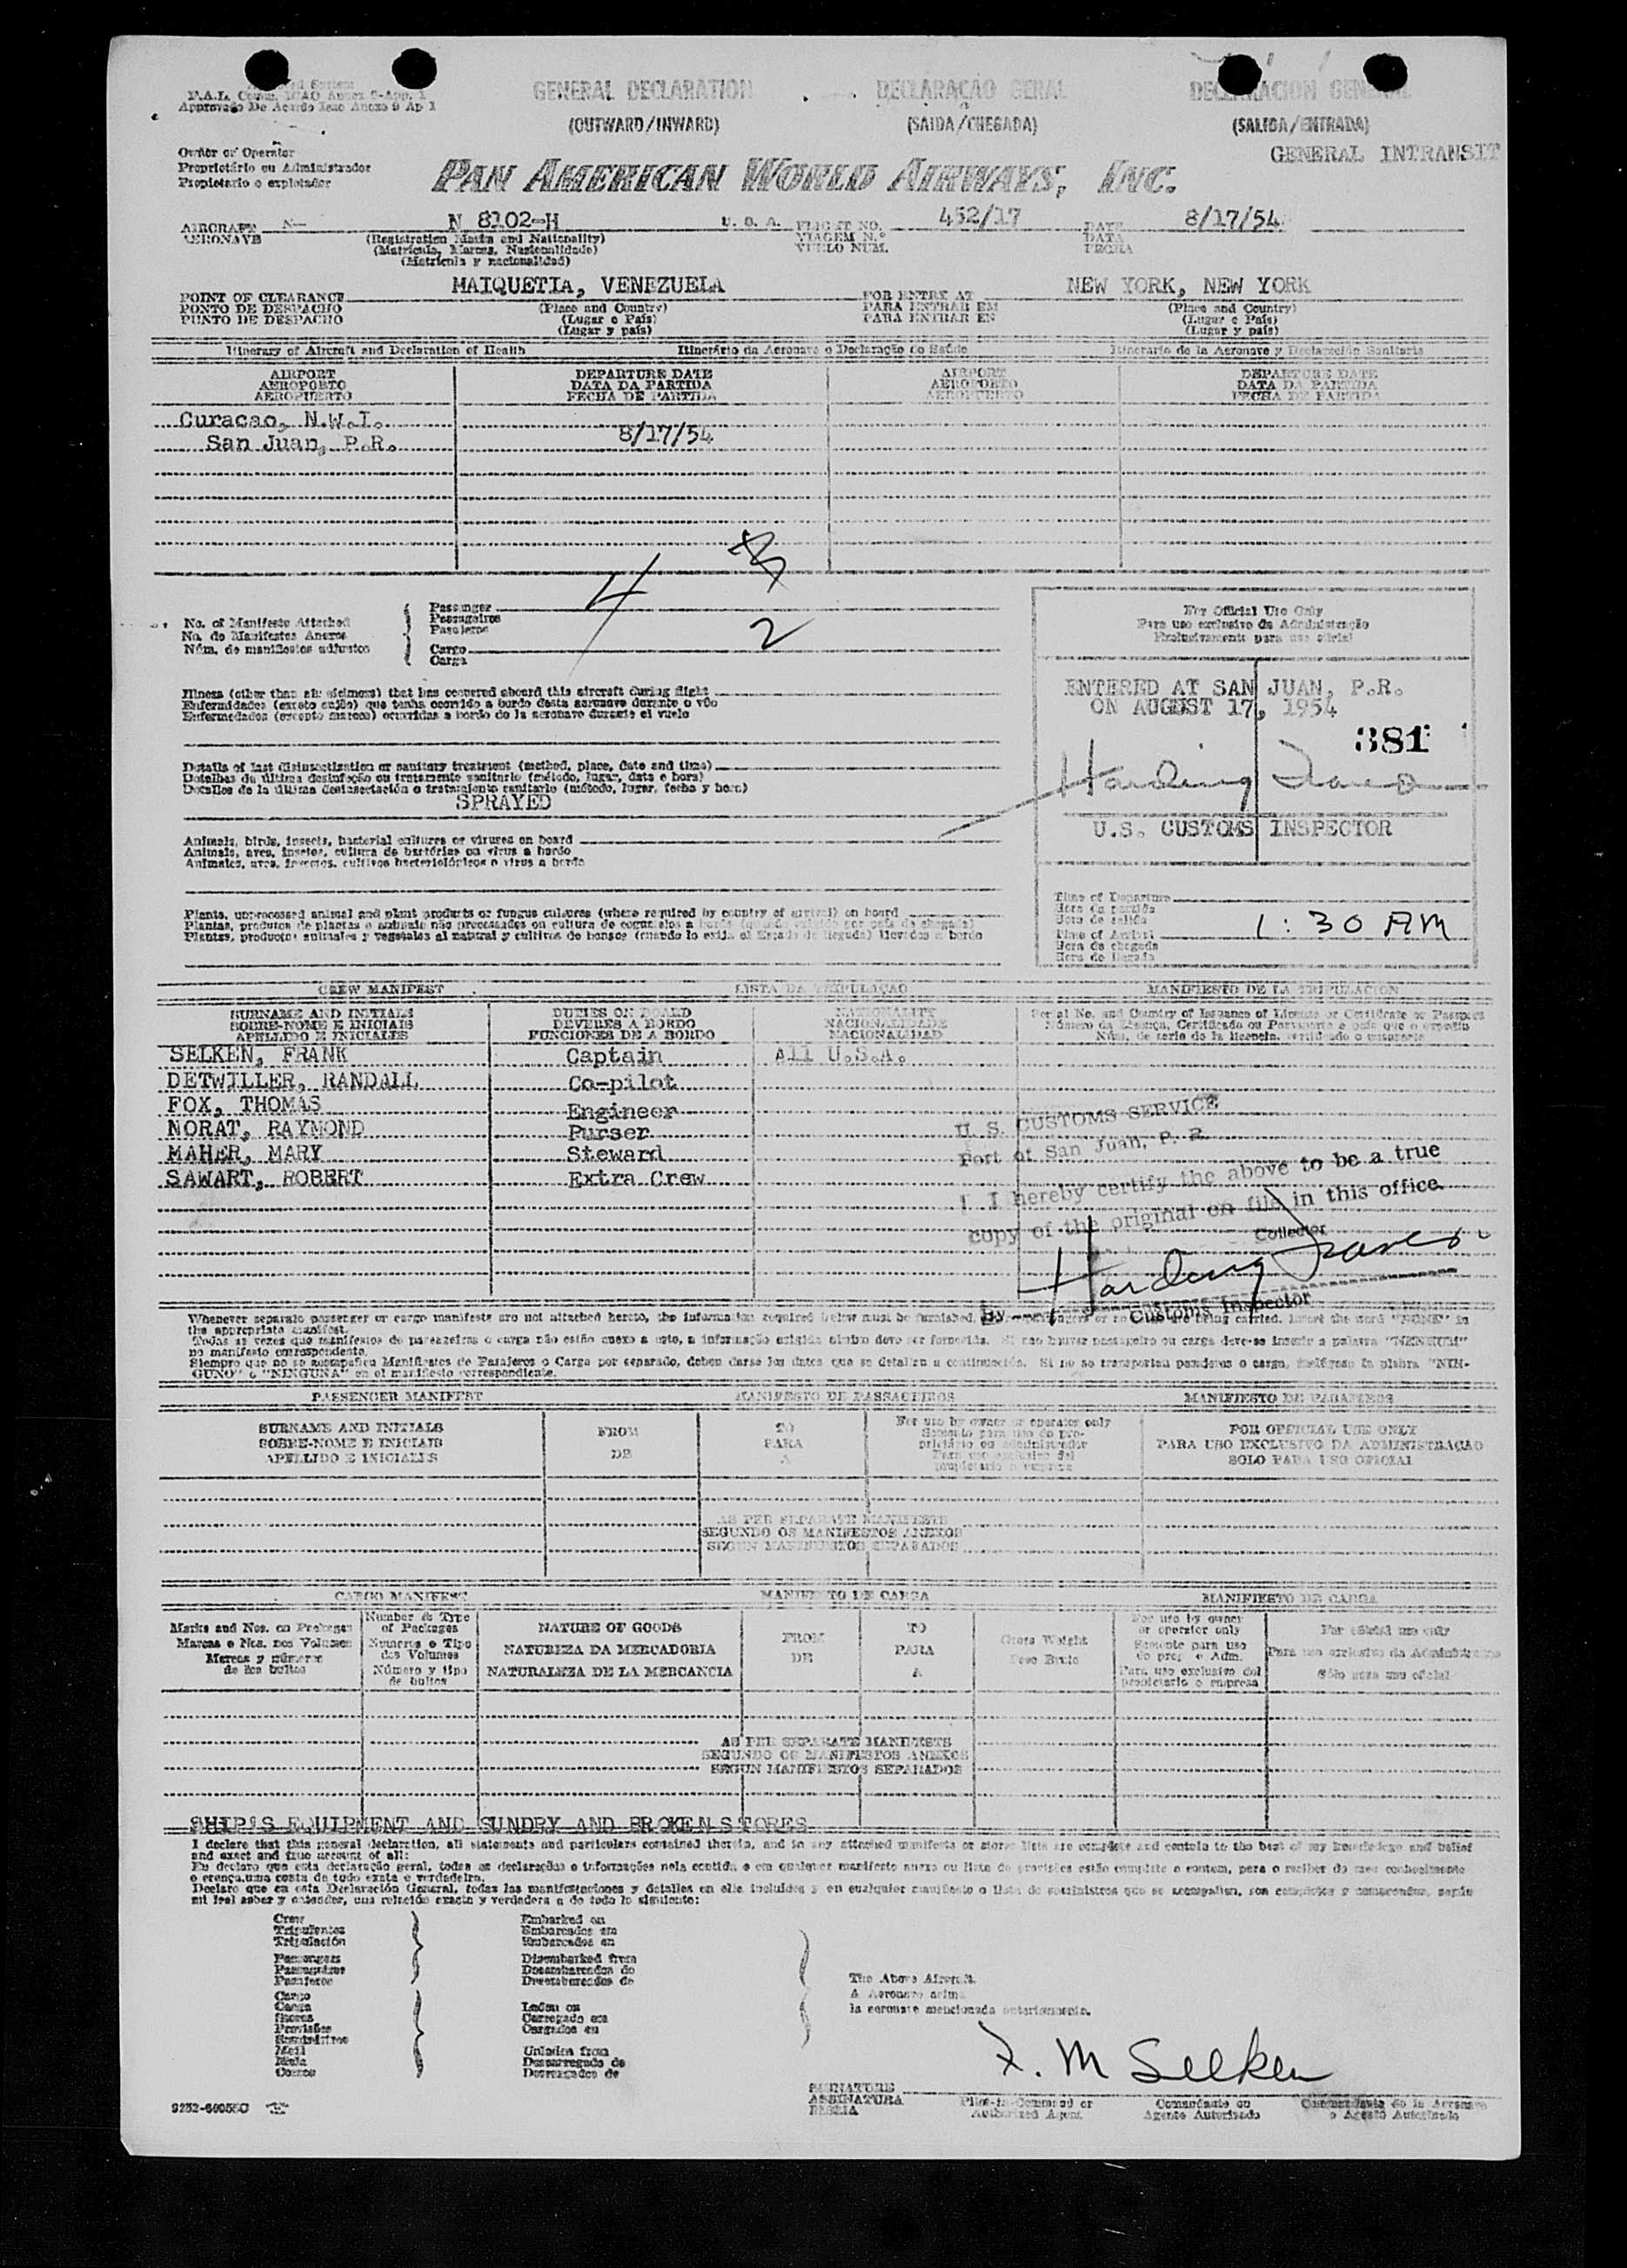 GENERAL DECLARATION DECLARAÇÃO GERAL DECLARACION GENERAL
Approvado De Acordo Icao Anexo 9 Ap 1
(OUTWARD/INWARD) (SAIDA/CHEGADA) (SALIDA/ENTRADA)
GENERAL INTRANSIT
Owner or Operator
Proprietário ou Administrador
Propietario o explotador
PAN AMERICAN WORLD AIRWAYS, INC.
AIRCRAFT N— N 8102-H U. S. A. FLIGHT NO. 452/17 DATE 8/17/54
AERONAVE (Registration Marks and Nationality) VIAGEM N.º DATA
(Matrícula, Marcas, Nacionalidade) VUELO NUM. FECHA
(Matrícula y nacionalidad)
POINT OF CLEARANCE MAIQUETIA, VENEZUELA FOR ENTRY AT NEW YORK, NEW YORK
PONTO DE DESPACHO (Place and Country) PARA ENTRAR EM (Place and Country)
PUNTO DE DESPACHO (Lugar e País) PARA ENTRAR EN (Lugar e País)
(Lugar y país) (Lugar y país)
Itinerary of Aircraft and Declaration of Health Itinerário da Aeronave e Declaração de Saúde Itinerario de la Aeronave y Declaración Sanitaria
AIRPORT DEPARTURE DATE AIRPORT DEPARTURE DATE
AEROPORTO DATA DA PARTIDA AEROPORTO DATA DA PARTIDA
AEROPUERTO FECHA DE PARTIDA AEROPUERTO FECHA DE PARTIDA
Curacao, N.W.I.
San Juan, P.R. 8/17/54
4
No. of Manifests Attached Passenger
No. de Manifestos Anexos Passageiros
Núm. de manifiestos adjuntos Pasajeros
Cargo 2
Carga
For Official Use Only
Para uso exclusivo da Administração
Exclusivamente para uso oficial
ENTERED AT SAN JUAN, P.R.
ON AUGUST 17, 1954
381
Harding
U.S. CUSTOMS INSPECTOR
Illness (other than air sickness) that has occurred aboard this aircraft during flight
Enfermidades (exceto enjôo) que tenha ocorrido a bordo desta aeronave durante o vôo
Enfermedades (excepto mareos) ocurridas a bordo de la aeronave durante el vuelo
Details of last disinsectization or sanitary treatment (method, place, date and time)
Detalhes da última desinfeção ou tratamento sanitario (método, lugar, data e hora)
Detalles de la última desinsectación o tratamiento sanitario (método, lugar, fecha y hora)
SPRAYED
Animals, birds, insects, bacterial cultures or viruses on board
Animais, aves, insetos, cultura de bactérias ou virus a bordo
Animales, aves, insectos, cultivos bacteriológicos o virus a bordo
Plants, unprocessed animal and plant products or fungus cultures (where required by country of arrival) on board
Plantas, produtos de plantas e animais não processados ou cultura de cogumelos a bordo (quando exigido por país de chegada)
Plantas, productos animales y vegetales al natural y cultivos de hongos (cuando lo exija el Estado de llegada) llevados a bordo
Time of Departure
Hora da partida
Hora de salida
Time of Arrival 1:30 AM
Hora de chegada
Hora de llegada
CREW MANIFEST LISTA DA TRIPULAÇÃO MANIFIESTO DE LA TRIPULACION
SURNAME AND INITIALS DUTIES ON BOARD NATIONALITY Serial No. and Country of Issuance of License or Certificate or Passport
SOBRE-NOME E INICIAIS DEVERES A BORDO NACIONALIDADE Número da Licença, Certificado ou Passaporte e país que o expediu
APELLIDO E INICIALES FUNCIONES DE A BORDO NACIONALIDAD Núm. de serie de la licencia, certificado o pasaporte
SELKEN, FRANK Captain All U.S.A.
DETWILLER, RANDALL Co-pilot
FOX, THOMAS Engineer
NORAT, RAYMOND Purser
MAHER, MARY Steward
SAWART, ROBERT Extra Crew
U. S. CUSTOMS SERVICE
Port of San Juan, P. R.
I hereby certify the above to be a true
copy of the original on file in this office.
Collector
Harding
By Customs Inspector
Whenever separate passenger or cargo manifests are not attached hereto, the information required below must be furnished. being carried. insert the word "NONE" in
the appropriate manifest.
Todas as vezes que manifestos de passageiros o carga não estão anexo a este, a informação exigida abaixo deve ser fornecida. Si não houver passageiro ou carga deve-se inserir a palavra "NENHUM"
no manifesto correspondente.
Siempre que no se acompañen Manifiestos de Pasajeros o Carga por separado, deben darse los datos que se detallan a continuación. Si no se transportan pasajeros o carga, insértese la palabra "NIN-
GUNO" o "NINGUNA" en el manifiesto correspondiente.
PASSENGER MANIFEST MANIFESTO DE PASSAGEIROS MANIFIESTO DE PASAJEROS
SURNAME AND INITIALS FROM TO For use by owner or operator only FOR OFFICIAL USE ONLY
SOBRE-NOME E INICIAIS DE PARA Somente para uso do pro- PARA USO EXCLUSIVO DA ADMINISTRAÇÃO
APELLIDO E INICIALES A prietário ou administrador SOLO PARA USO OFICIAL
Para uso exclusivo del
propietario o empresa
AS PER SEPARATE MANIFESTS
SEGUNDO OS MANIFESTOS ANEXOS
SEGUN MANIFIESTOS SEPARADOS
CARGO MANIFEST MANIFESTO DE CARGA MANIFIESTO DE CARGA
Marks and Nos. on Packages Number & Type of Packages NATURE OF GOODS FROM TO Gross Weight For use by owner or operator only For official use only
Marcas e Nos. nos Volumes Numeros e Tipo dos Volumes NATUREZA DA MERCADORIA DE PARA Peso Bruto Somente para uso do prop. e Adm. Para uso exclusivo da Administração
Marcas y números de los bultos Número y tipo de bultos NATURALEZA DE LA MERCANCIA A Para uso exclusivo del propietario o empresa Sólo para uso oficial
AS PER SEPARATE MANIFESTS
SEGUNDO OS MANIFESTOS ANEXOS
SEGUN MANIFIESTOS SEPARADOS
SHIP'S EQUIPMENT AND SUNDRY AND BROKEN STORES
I declare that this general declaration, all statements and particulars contained therein, and in any attached manifests or stores lists are complete and contain to the best of my knowledge and belief
and exact and true account of all:
Eu declaro que esta declaração geral, todas as declarações e informações nela contida e em qualquer manifesto anexo ou lista de provisões estão completo e contem, para o melhor do meu conhecimento
e crença,uma conta de todo exata e verdadeira.
Declaro que en esta Declaración General, todas las manifestaciones y detalles en ella incluidos y en cualquier manifiesto o lista de suministros que se acompañan, son completos y comprenden, según
mi leal saber y entender, una relación exacta y verdadera a de todo lo siguiente:
Crew Embarked on
Tripulantes Embarcados em
Tripulación Embarcados en
Passengers Disembarked from
Passageiros Desembarcados do
Pasajeros Desembarcados de
The Above Aircraft.
A Aeronave acima
la aeronave mencionada anteriormente.
Cargo
Carga Laden on
Stores Carregado em
Provisões Cargados en
Suministros
Mail Unladen from
Mala Descarregado de
Correo Descargados de
F. M Selken
SIGNATURE Pilot-in-Command or Comandante ou Comandante de la Aeronave
ASSINATURA Authorized Agent Agente Autorizado o Agente Autorizado
FIRMA